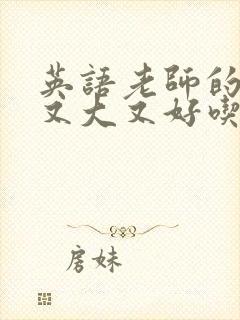 英語老師的
又大又好喫
房妹